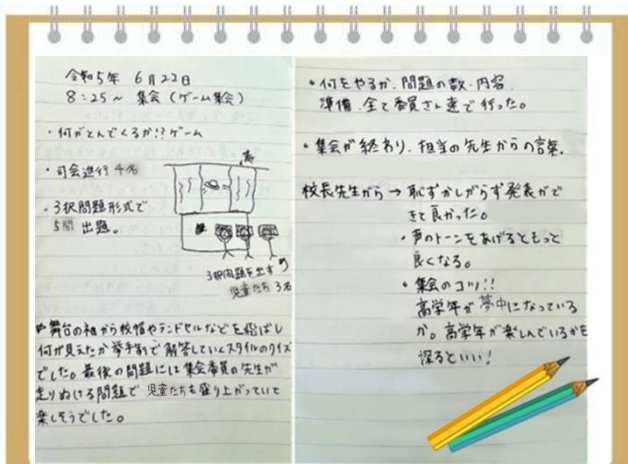 令和5年 6月22日
8:25〜 集会(ゲーム集会)
・何がとんでくるか!?ゲーム
・司会進行 4名
・3択問題形式で
5問 出題。
幕
3択問題を出す
児童たち 3名
舞台の袖から校帽やランドセルなどを飛ばし
何が見えたか挙手制で解答していくスタイルのクイズ
でした。最後の問題には集会委員の先生が
走りぬける問題で 児童たちも盛り上がっていて
楽しそうでした。
・何をやるか、問題の数・内容
準備、全て委員さん達で行った。
・集会が終わり、担当の先生からの言葉。
校長先生から → 恥ずかしがらず発表がで
きて良かった。
・声のトーンをあげるともっと
良くなる。
・集会のコツ!!
高学年が夢中になっている
か。高学年が楽しんでいるかを
探るといい!